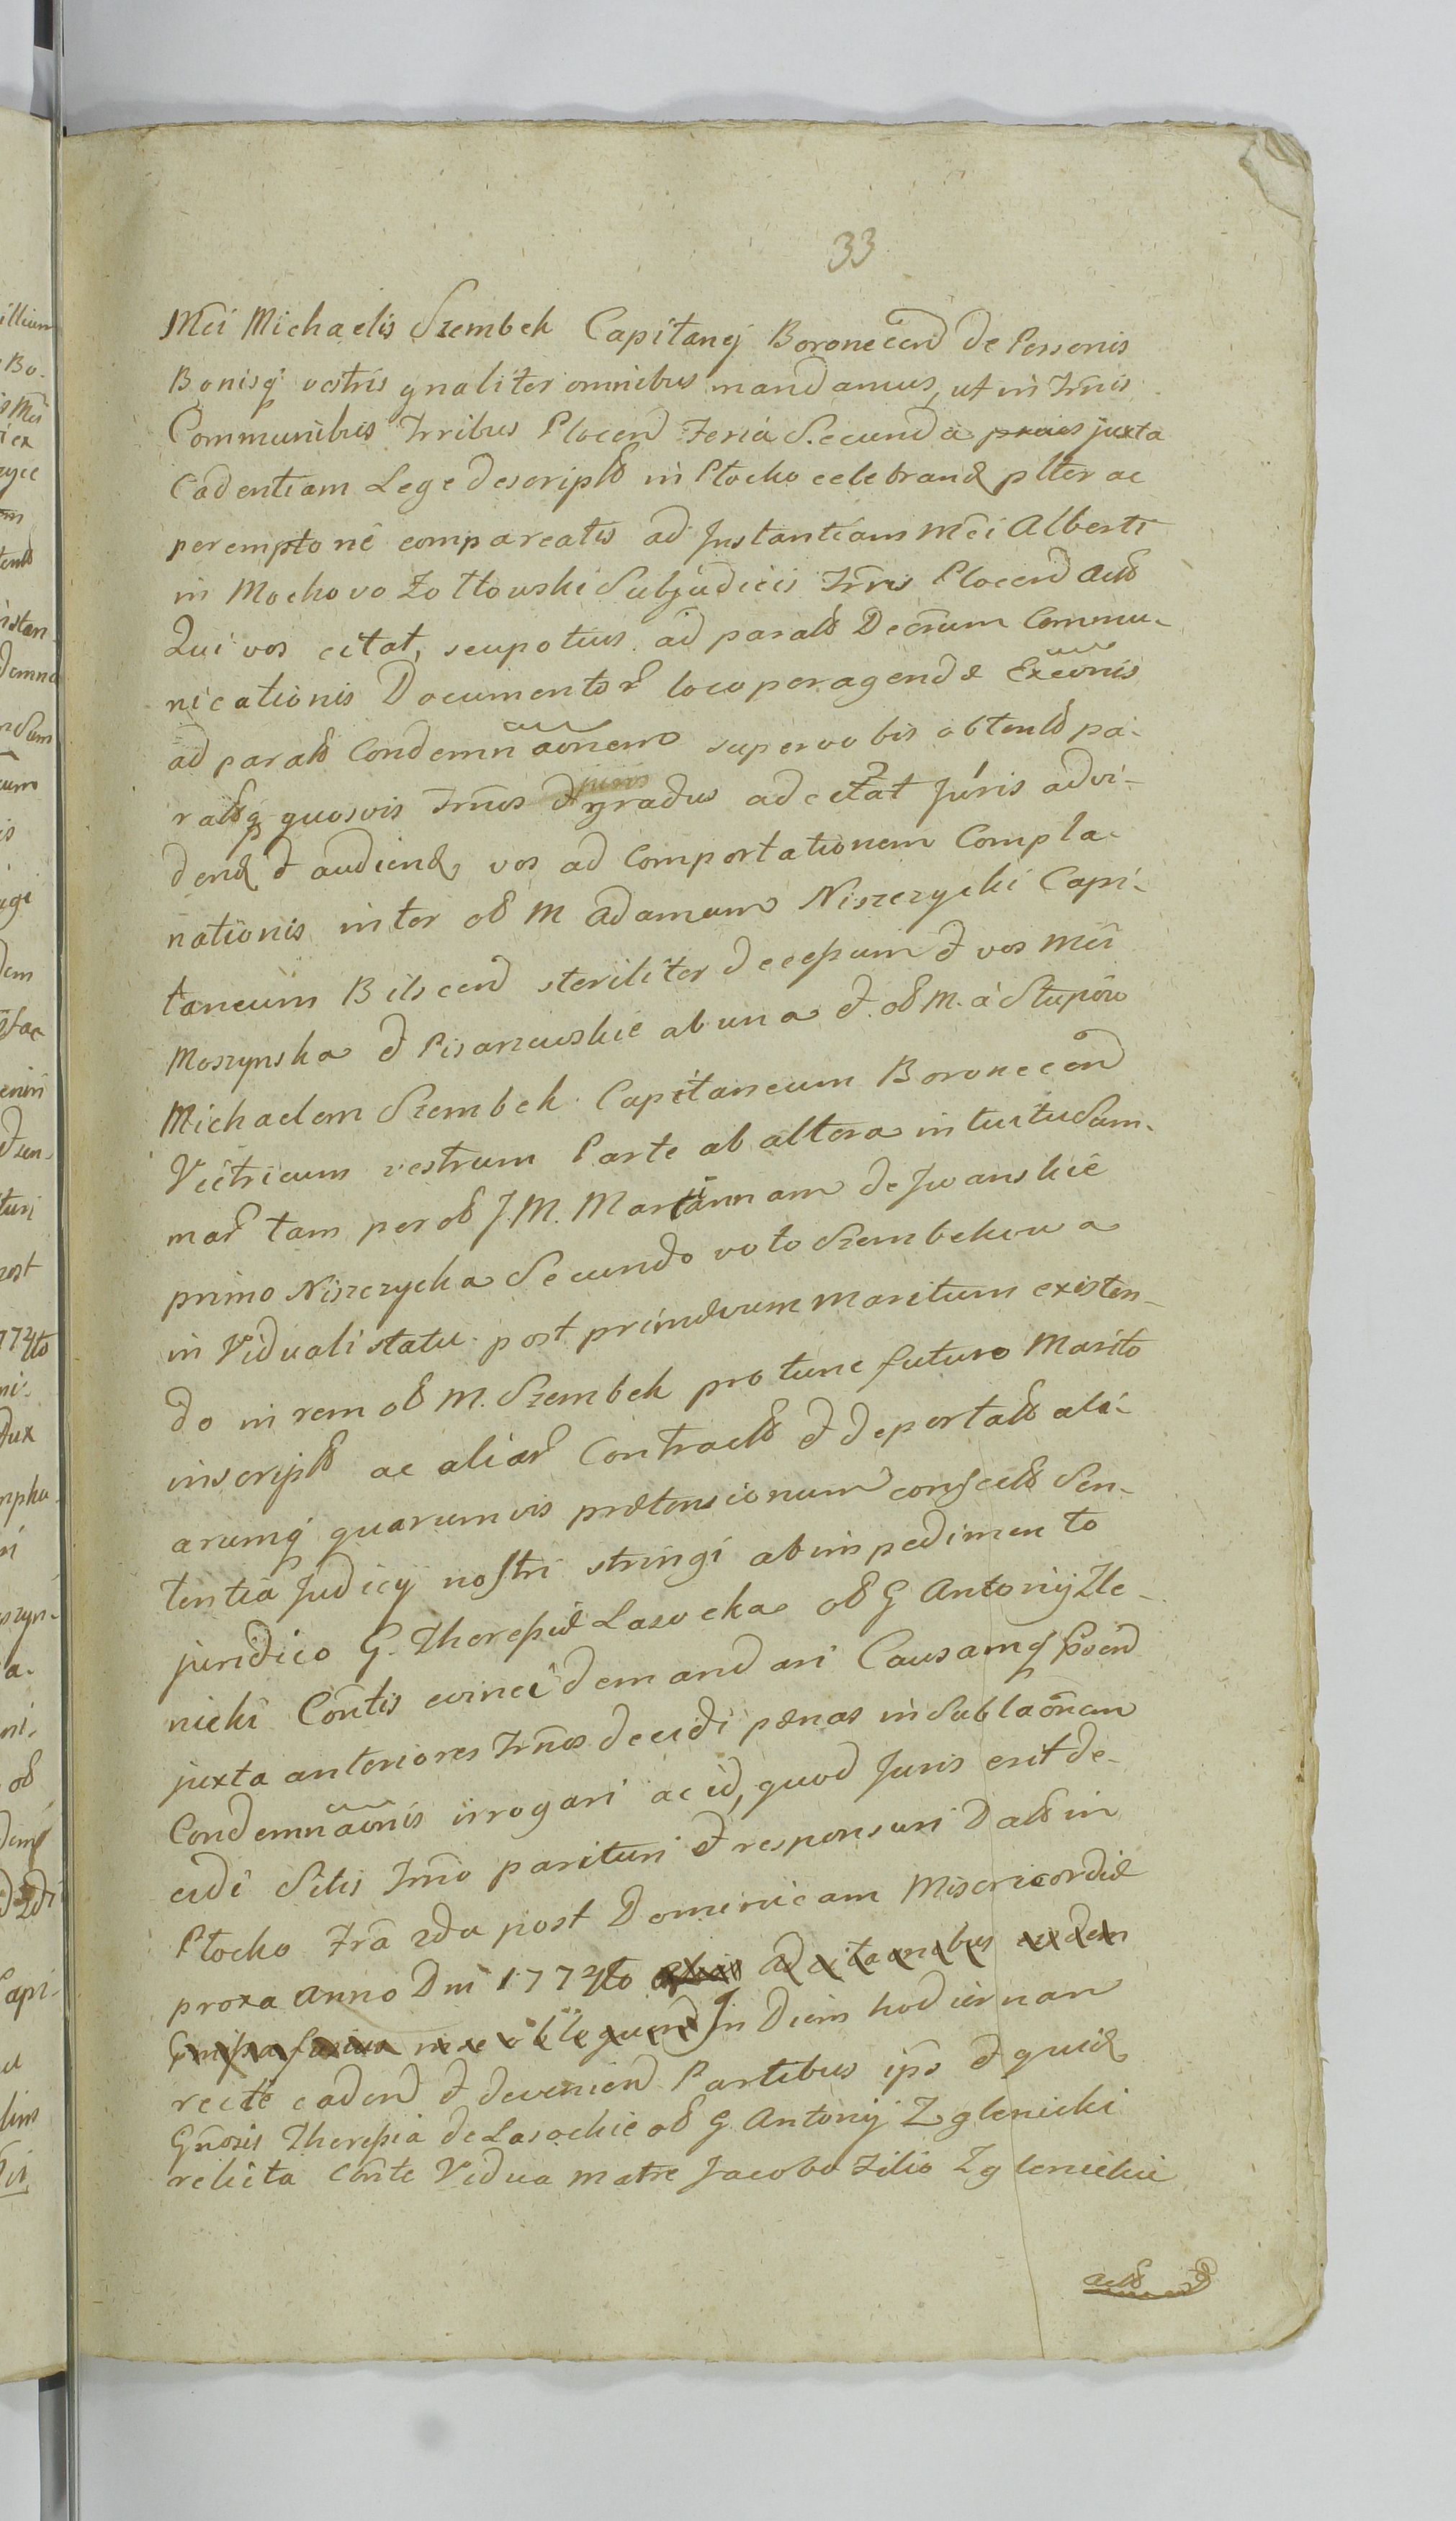 33
Mci Michaelis Szembek Capitanej Boroneccen de Personis
Bonisq vestris gnaliter omnibus mandamus, ut in Trnis
Communibus Trribus Plocen Feria Secunda juxta
Cadentiam Lege descript in Płocko celebrand plter ac
peremptone compareatis ad Instantiam Mci Alberti
in Mochovo Zołtowski Subjudicis Trris Plocen Act
Qui vos citat, seu potius ad parat Decrum Commu-
nicationis Documentor loco peragendæ Exconis
ad parat Condemnaonem super vobis obtent pa-
ratq quosvis Trnos & juris gradus ad citat Juris ad vi-
dend & audiend, vos ad Comportationem Compla-
nationis inter ol M Adamum Niszczycki Capi-
taneum Bilscen steriliter decessum & vos Mci
Moszynska & Pisarzewskie ab una & ol M. a Słupow
Michaelem Szembek Capitaneum Boroneccen
Vitricum vestrum Parte ab altera intuitu Sum-
mar tam per ol J. M. Mariannam de Iwanskie
primo Niszczycka Secundo voto Szembekowa
in Viduali statu post primævum maritum existen-
do in rem ol M. Szembek pro tunc futuro Marito
inscript ac aliar Contract & deportat ali-
arumq quarumvis prætensionum confect Sen-
tentia Judicij nostri stringi ab impedimento
juridico G. Theressiæ Lasocka ol G Antonij Zle-
nicki Contis evinci demandari Causamq
juxta anteriores Trnos decidi pænas in Sublaonem
Condemnaonis irrogari ac id, quod Juris erit de-
cidi Sitis Trno parituri & responsuri Dat in
Płocko Fra 2da post Dominicam Misericordiæ
proxa Anno Dni 1774to
In Diem hodiernam
recte caden & devenien Partibus ips & quid
Gnosis Theressia de Lasockie ol G Antonij Zglenicki
relicta Conte Vidua matre Jacobo Filio Zglenickie
act